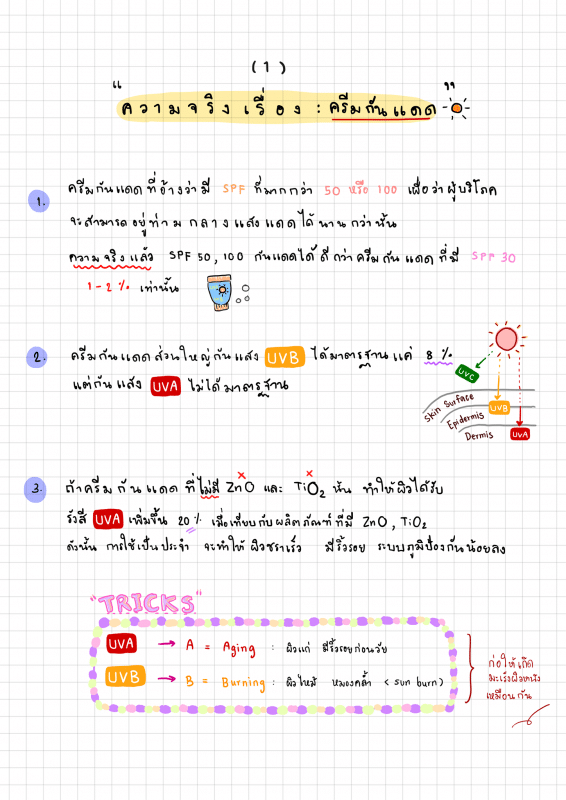 (1)
" ความจริงเรื่อง : ครีมกันแดด "
1. ครีมกันแดดที่อ้างว่ามี SPF ที่มากกว่า 50 หรือ 100 เพื่อว่าผู้บริโภค
จะสามารถอยู่ท่ามกลางแสงแดดได้นานกว่านั้น
ความจริงแล้ว SPF 50, 100 กันแดดได้ดีกว่าครีมกันแดดที่มี SPF 30
1-2 % เท่านั้น
2. ครีมกันแดดส่วนใหญ่กันแสง UVB ได้มาตรฐานแค่ 8 %
แต่กันแสง UVA ไม่ได้มาตรฐาน
UVC
Skin Surface
Epidermis UVB
Dermis UVA
3. ถ้าครีมกันแดดที่ไม่มี ZnO และ TiO2 นั้น ทำให้ผิวได้รับ
รังสี UVA เพิ่มขึ้น 20 % เมื่อเทียบกับผลิตภัณฑ์ที่มี ZnO, TiO2
ดังนั้น การใช้เป็นประจำ จะทำให้ผิวชราเร็ว มีริ้วรอย ระบบภูมิป้องกันน้อยลง
"TRICKS"
UVA → A = Aging : ผิวแก่ มีริ้วรอยก่อนวัย
UVB → B = Burning : ผิวไหม้ หมองคล้ำ (sun burn)
ก่อให้เกิด
มะเร็งผิวหนัง
เหมือนกัน